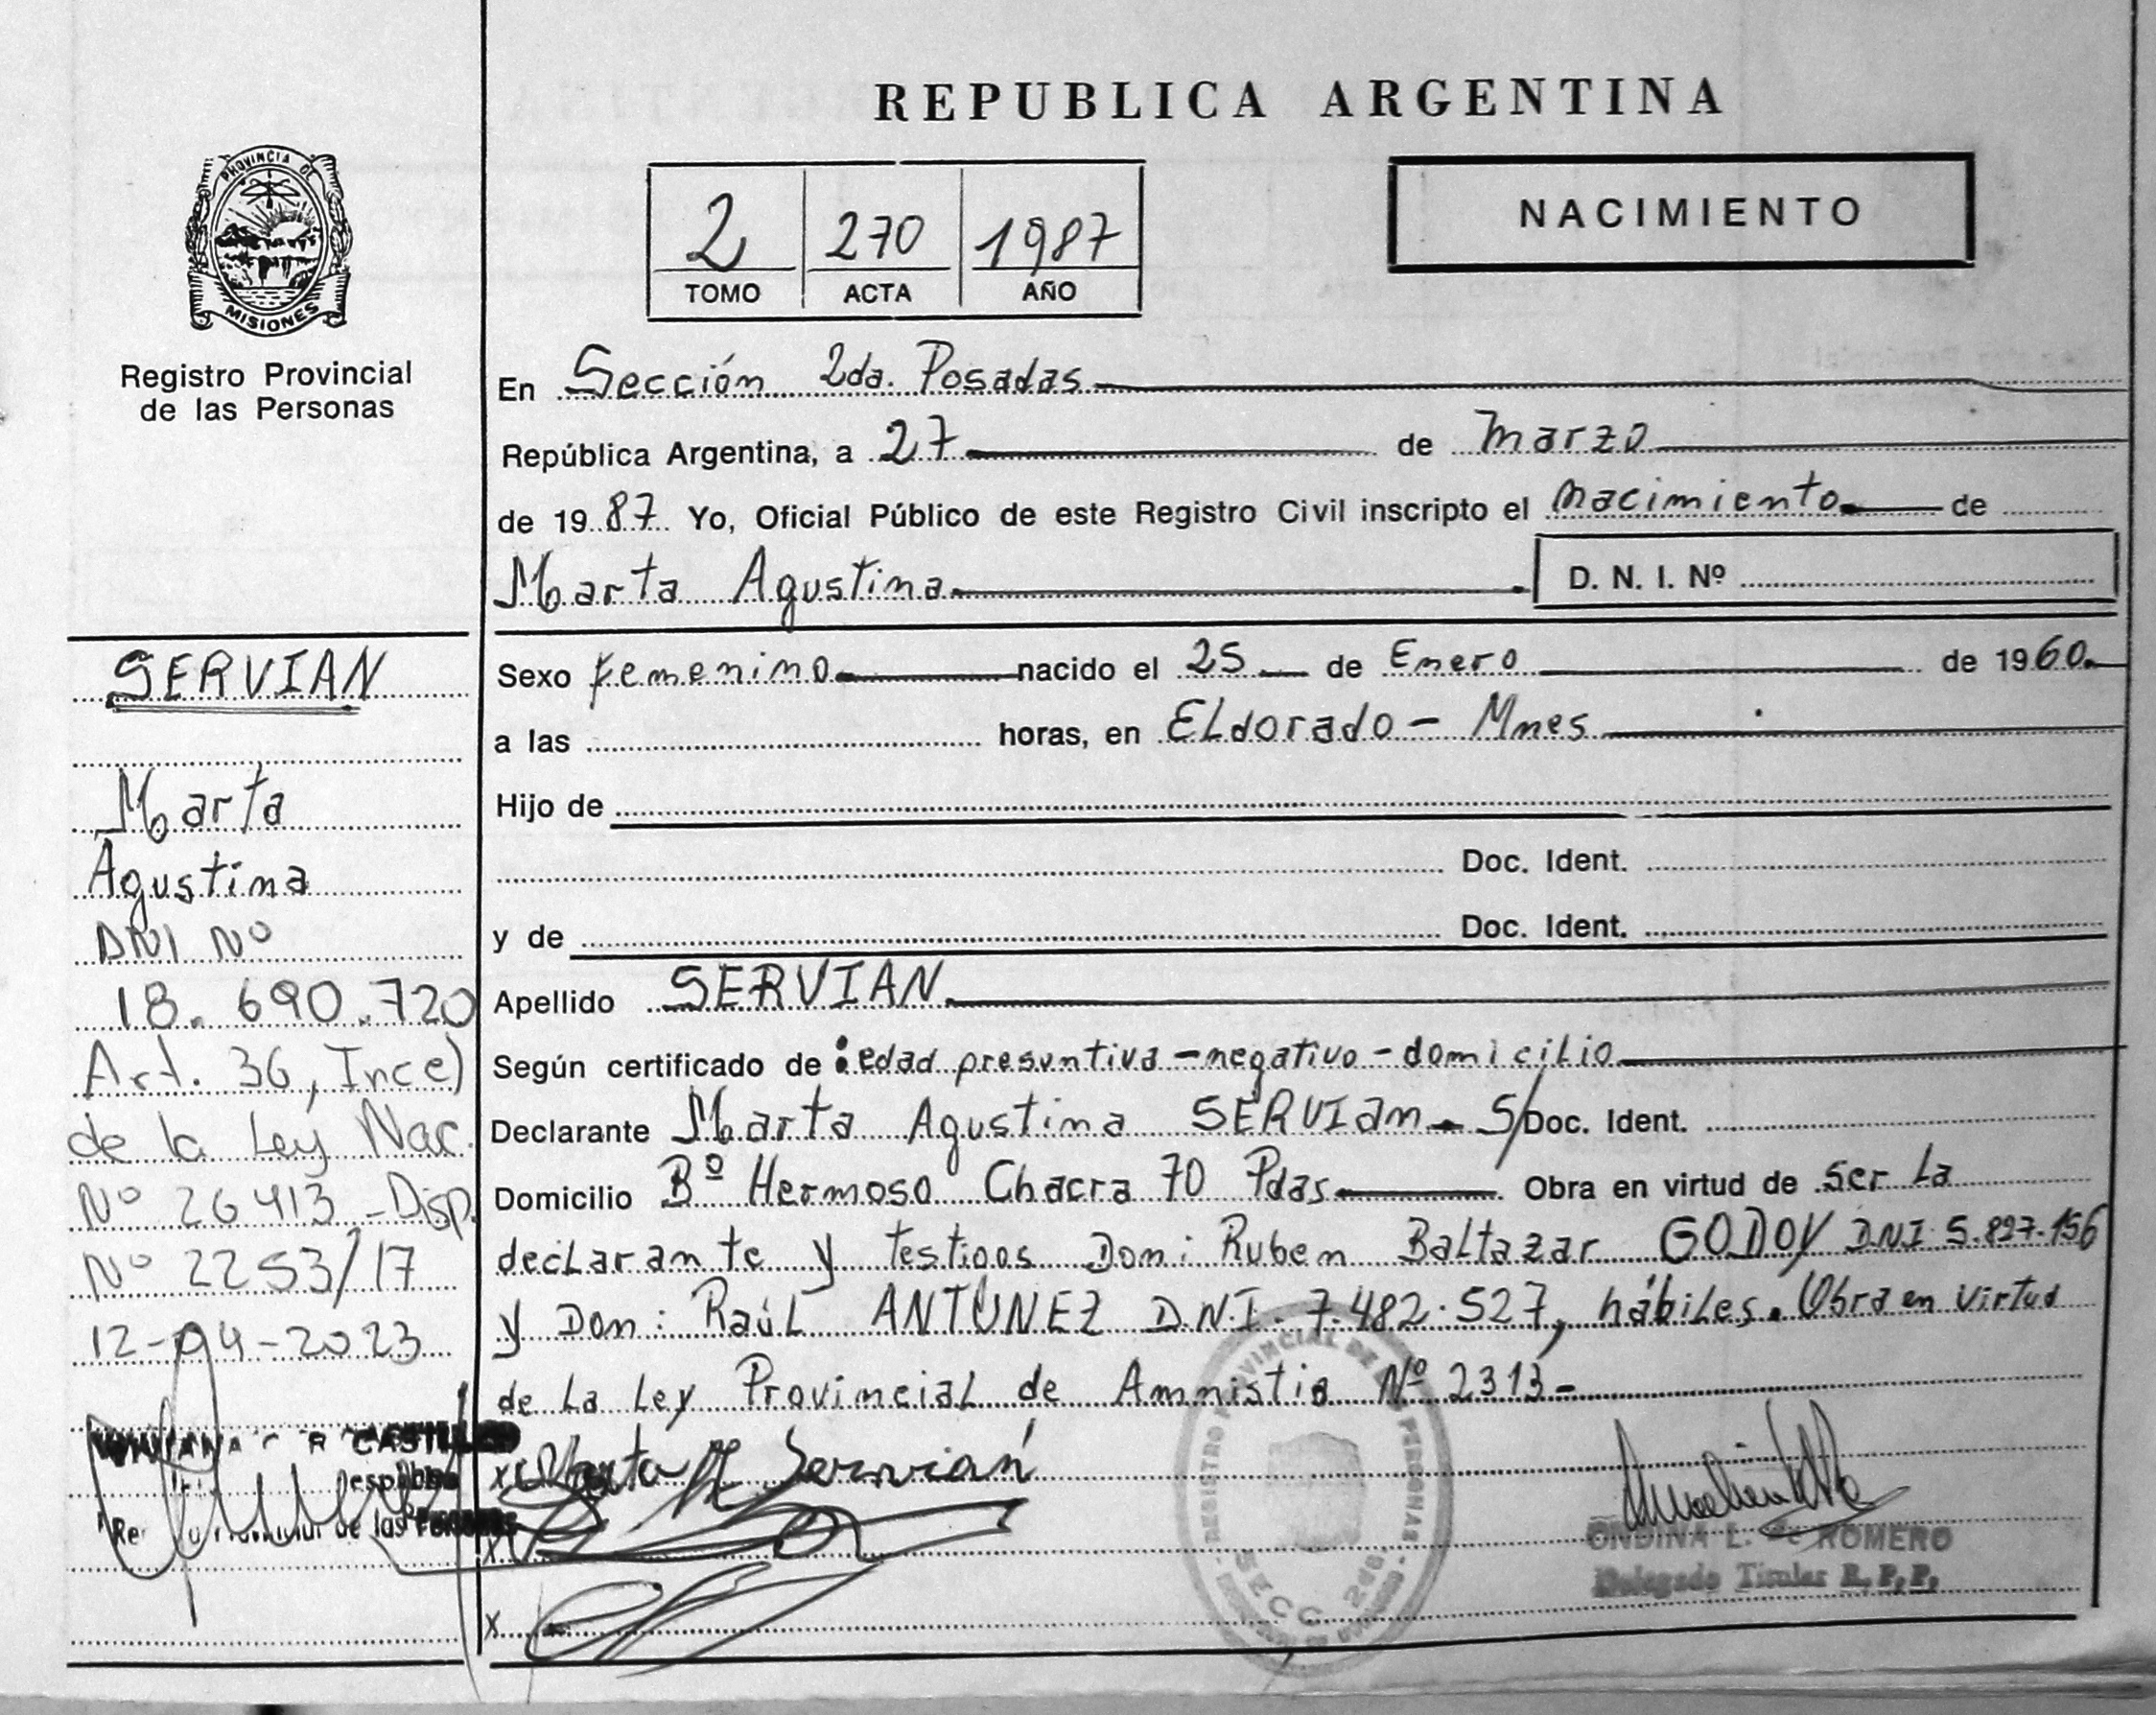 REPUBLICA ARGENTINA
PROVINCIA DE
MISIONES
Registro Provincial
de las Personas
2 270 1987
TOMO ACTA AÑO
NACIMIENTO
En Sección 2da. Posadas
República Argentina, a 27 de Marzo
de 19 87 Yo, Oficial Público de este Registro Civil inscripto el nacimiento de
Marta Agustina
D. N. I. Nº
Sexo femenino nacido el 25 de Enero de 1960
a las horas, en ELdorado - Mnes
Hijo de
Doc. Ident.
y de Doc. Ident.
Apellido SERVIAN
Según certificado de : edad presuntiva - negativo - domicilio
Declarante Marta Agustina SERVIAN - S/Doc. Ident.
Domicilio Bº Hermoso Chacra 70 Pdas Obra en virtud de ser La
declarante y testigos Don: Ruben Baltazar GODOY D.N.I 5.827.156
y Don: Raúl ANTUNEZ D.N.I. 7.482.527, hábiles. Obra en virtud
de La Ley Provincial de Amnistia Nº 2313-
SERVIAN
Marta
Agustina
DNI Nº
18.690.720
Art. 36, Ince)
de la Ley Nac.
Nº 26413 - Disp.
Nº 2253/17
12-04-2023
CASTILLO
de las
x Marta A Servián
x
x
REGISTRO PROVINCIAL DE LAS PERSONAS
SECC. 2da.
ONDINA L. de ROMERO
Delegado Titular R. P. P.